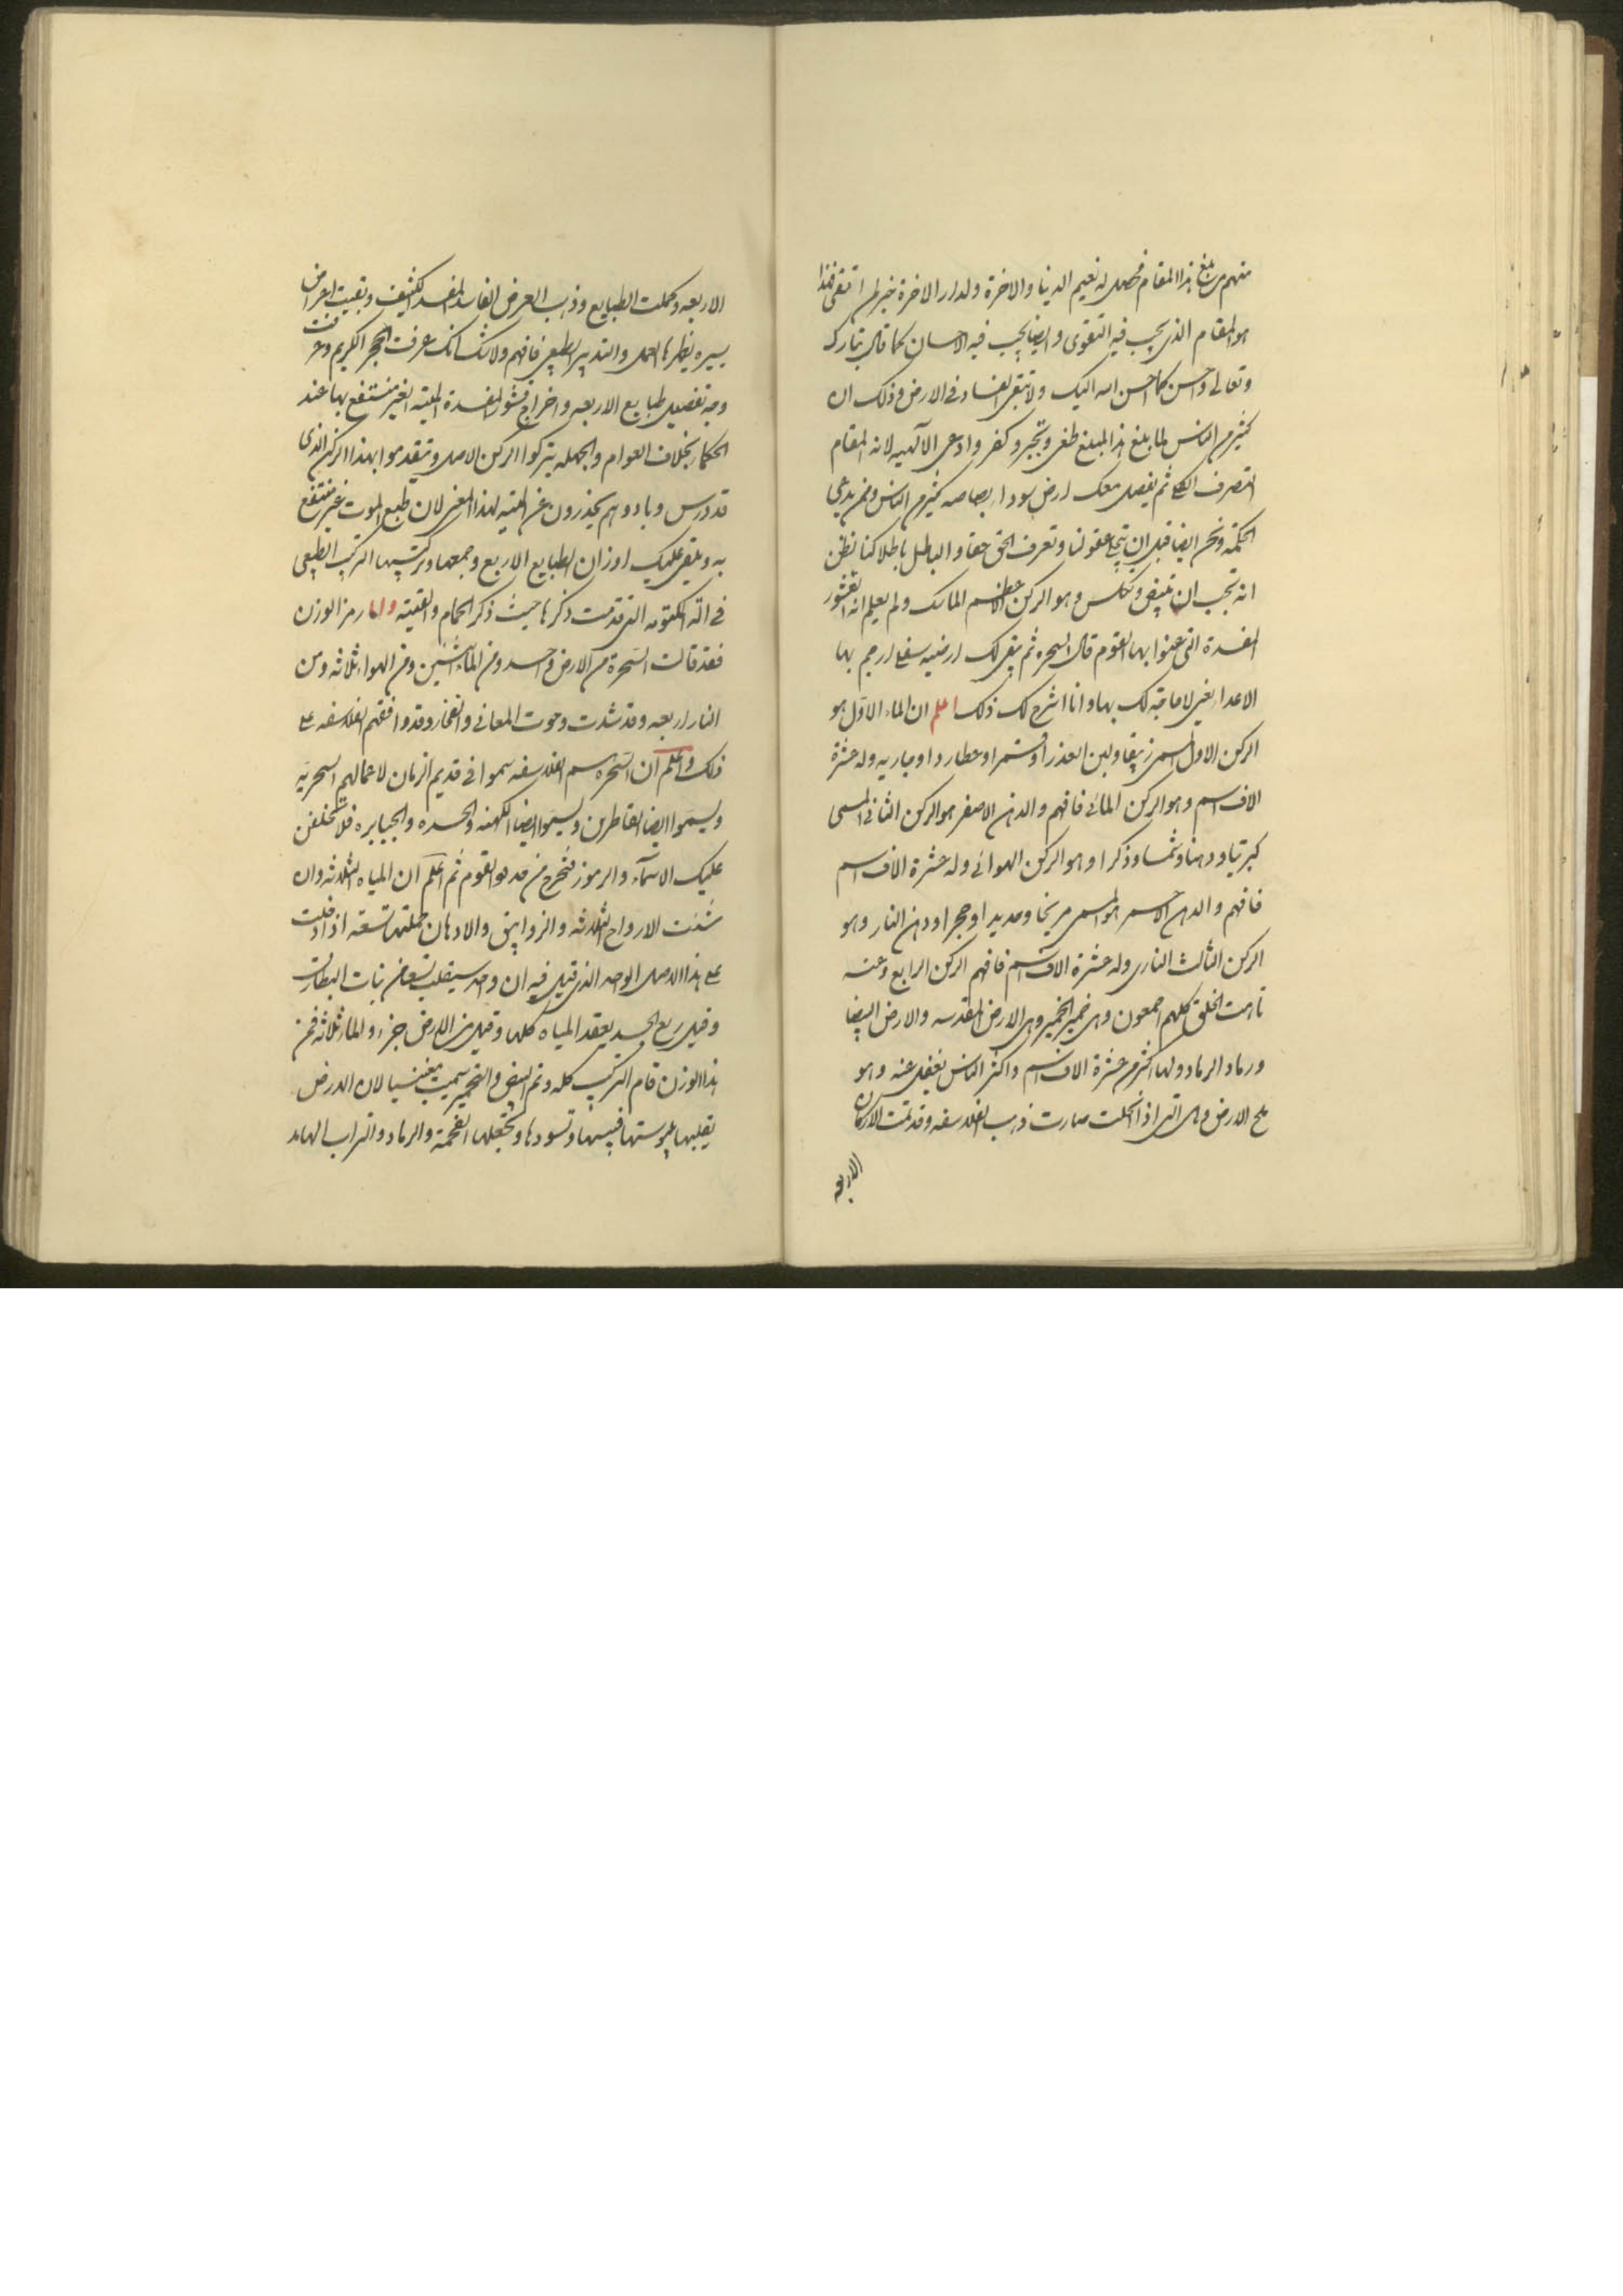 منهم من بلغ هذا المقام فحصل له نعيم الدنيا والاخرة ولدار الاخرة خير لمن اتقى فهذا
هو المقام الذى يجب فيه التقوى وايضا يجب فيه الاحسان كما قال تبارك
وتعالى واحسن كما احسن الله اليك ولا تبتغى الفساد فى الارض وذلك ان
كثير من الناس لما بلغ هذا المبلغ طغى وتجبر وكفر وادعى الالهيه لانه المقام
التصرف ثم يفصل معك ارض سودا رصاصيه كثير من الناس ومن يدعى
الحكمة ونحن ايضا قبل ان عقولنا وتعرف الحق حقا والباطل باطلا كنا نظن
انه يجب ان تبيض وتكلس وهو الركن الاعظم الماسك ولم يعلم انه القشور
المفسدة التى عنوا بها القوم قال السحره ثم يبقى لك ارضيه سفلى ارجم بها
الاعداء يعنى لا حاجة لك بها وانا اشرح لك ذلك اعلم ان الماء الاول هو
الركن الاول المسمى زيبقا ولبن العذرا وقمرا وعطاردا وجاريه وله عشرة
الاف اسم وهو الركن المائى فافهم والدهن الاصفر هو الركن الثانى المسمى
كبريتا ودهنا وشمسا وذكرا وهو الركن الهوائى وله عشرة الاف اسم
فافهم والدهن الاحمر هو المسمى مريخا وحديد او حجر او دهن النار وهو
الركن الثالث النارى وله عشرة الاف اسم فافهم الركن الرابع وعنه
تاهت الخلق كلهم اجمعون وهى خمير الخمير وهى الارض المقدسه والارض البيضا
ورماد الرماد ولها اكثر من عشرة الاف اسم واكثر الناس تغفل عنه وهو
ملح الارض وهى التى اذا انحلت صارت ذهب الفلاسفه وقد تمت الاركان
الاربعه
الاربعه وكملت الطبايع وذهب العرض الفاسد المفسد الكثيف وبقيت اعراض
يسيره يطهرها العمل والتدبير الطبيعى فافهم ولا شك انك عرفت الحجر الكريم وعرفت
وجه تفصيل طبايع الاربعه واخراج قشور المفسدة الميته الغير منتفع بها عند
الحكما بخلاف العوام والجهله يتركوا الركن الاصلى ويتقدموا بهذا الركن الذى
قد درس وباد وهم يحذرون عن الميته لهذا المعنى لان طبع الموت غير منتفع
به وبقى عليك اوزان الطبايع الاربع وجمعها وتركيبها التركيب الطبيعى
فى الة المكتومه التى قدمت ذكرها حيث ذكر الحمام والقنينه واما رمز الوزن
فقد قالت السحرة من الارض واحد ومن الماء اثنين ومن الهواء ثلاثه ومن
النار اربعه وقد شدت وحوت المعانى والفخار وقد وافقهم الفلاسفه على
ذلك واعلم ان السحره اسم الفلاسفه سموا فى قديم الزمان لاعمالهم السحريه
ويسموا ايضا القاطرين ويسموا ايضا الكهنه والحسده والجبابره فلا تختلفن
عليك الاسماء والرموز فتخرج من القوم ثم اعلم ان المياه الثلاثه وان
شئت الارواح الثلاثه والزوابيق والادهان جملتها تسعة اذا دخلت
على هذا الاصل الواحد الذى قيل فيه ان واحد سيغلب تسعا من بنات البطارق
وقيل ربع الجسد يعقد المياه كلها وقيل من الارض جزء والماء ثلاثه فمن
هذا الوزن قام التركيب كله وتم البيض والتحمير سميت مغنيسيا لان الارض
يقلبها يبوستها فيبسها وتسودها وتجعلها الفحمة والرماد والتراب الهامد